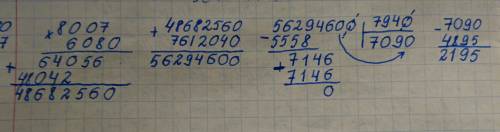 0
7
×8007
6080
+ 64056
48042
48682560
+48682560
7612040
56294600
-56294600 | 7940
5558 | 7090
+7146
7146
0
-7090
4895
2195